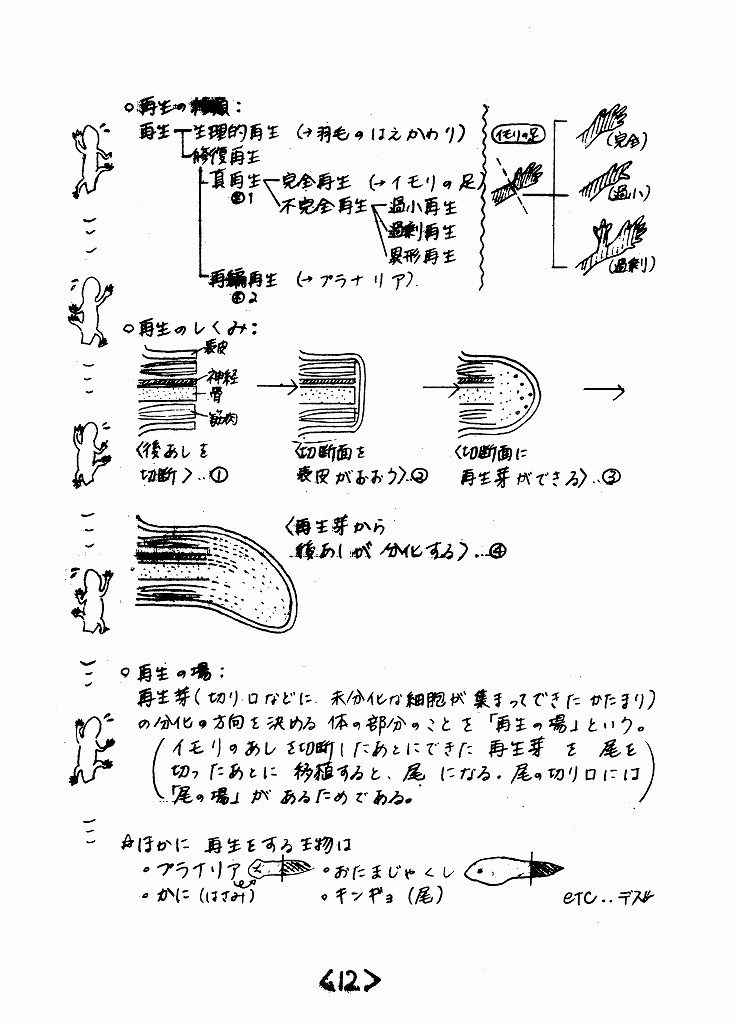 ○再生の種類:
再生 生理的再生 (→羽毛のはえかわり)
修復再生
真再生 完全再生 (→イモリの足)
※1
不完全再生 過小再生
過剰再生
異形再生
再編再生 (→プラナリア)
※2
イモリの足
(完全)
(過小)
(過剰)
○再生のしくみ:
表皮
神経
骨
筋肉
〈後あしを
切断〉‥①
〈切断面を
表皮がおおう〉‥②
〈切断面に
再生芽ができる〉‥③
〈再生芽から
後あしが分化する〉‥④
○再生の場:
再生芽(切り口などに、未分化な細胞が集まってできたかたまり)
の分化の方向を決める体の部分のことを「再生の場」という。
(イモリのあしを切断したあとにできた再生芽を尾を
切ったあとに移植すると、尾になる。尾の切り口には
「尾の場」があるためである。)
☆ほかに再生をする生物は
・プラナリア
・おたまじゃくし
・かに(はさみ)
・キンギョ(尾)
etc‥デス
<12>